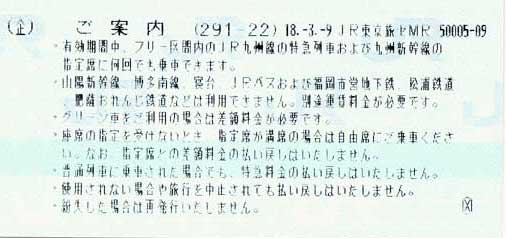 (企) ご案内 (291-22) 18.-3.-9 JR東京旅セMR 50005-09
・有効期間中、フリー区間内のJR九州線の特急列車および九州新幹線の
指定席に何回でも乗車できます。
・山陽新幹線、博多南線、寝台、JRバスおよび福岡市営地下鉄、松浦鉄道
肥薩おれんじ鉄道などは利用できません。別途運賃料金が必要です。
・グリーン車をご利用の場合は差額料金が必要です。
・座席の指定を受けないとき、指定席が満席の場合は自由席にご乗車くださ
い。なお、指定席との差額料金の払い戻しはいたしません。
・普通列車に乗車された場合でも、特急料金の払い戻しはいたしません。
・使用されない場合や旅行を中止されても払い戻しはいたしません。
・紛失した場合は再発行いたしません。